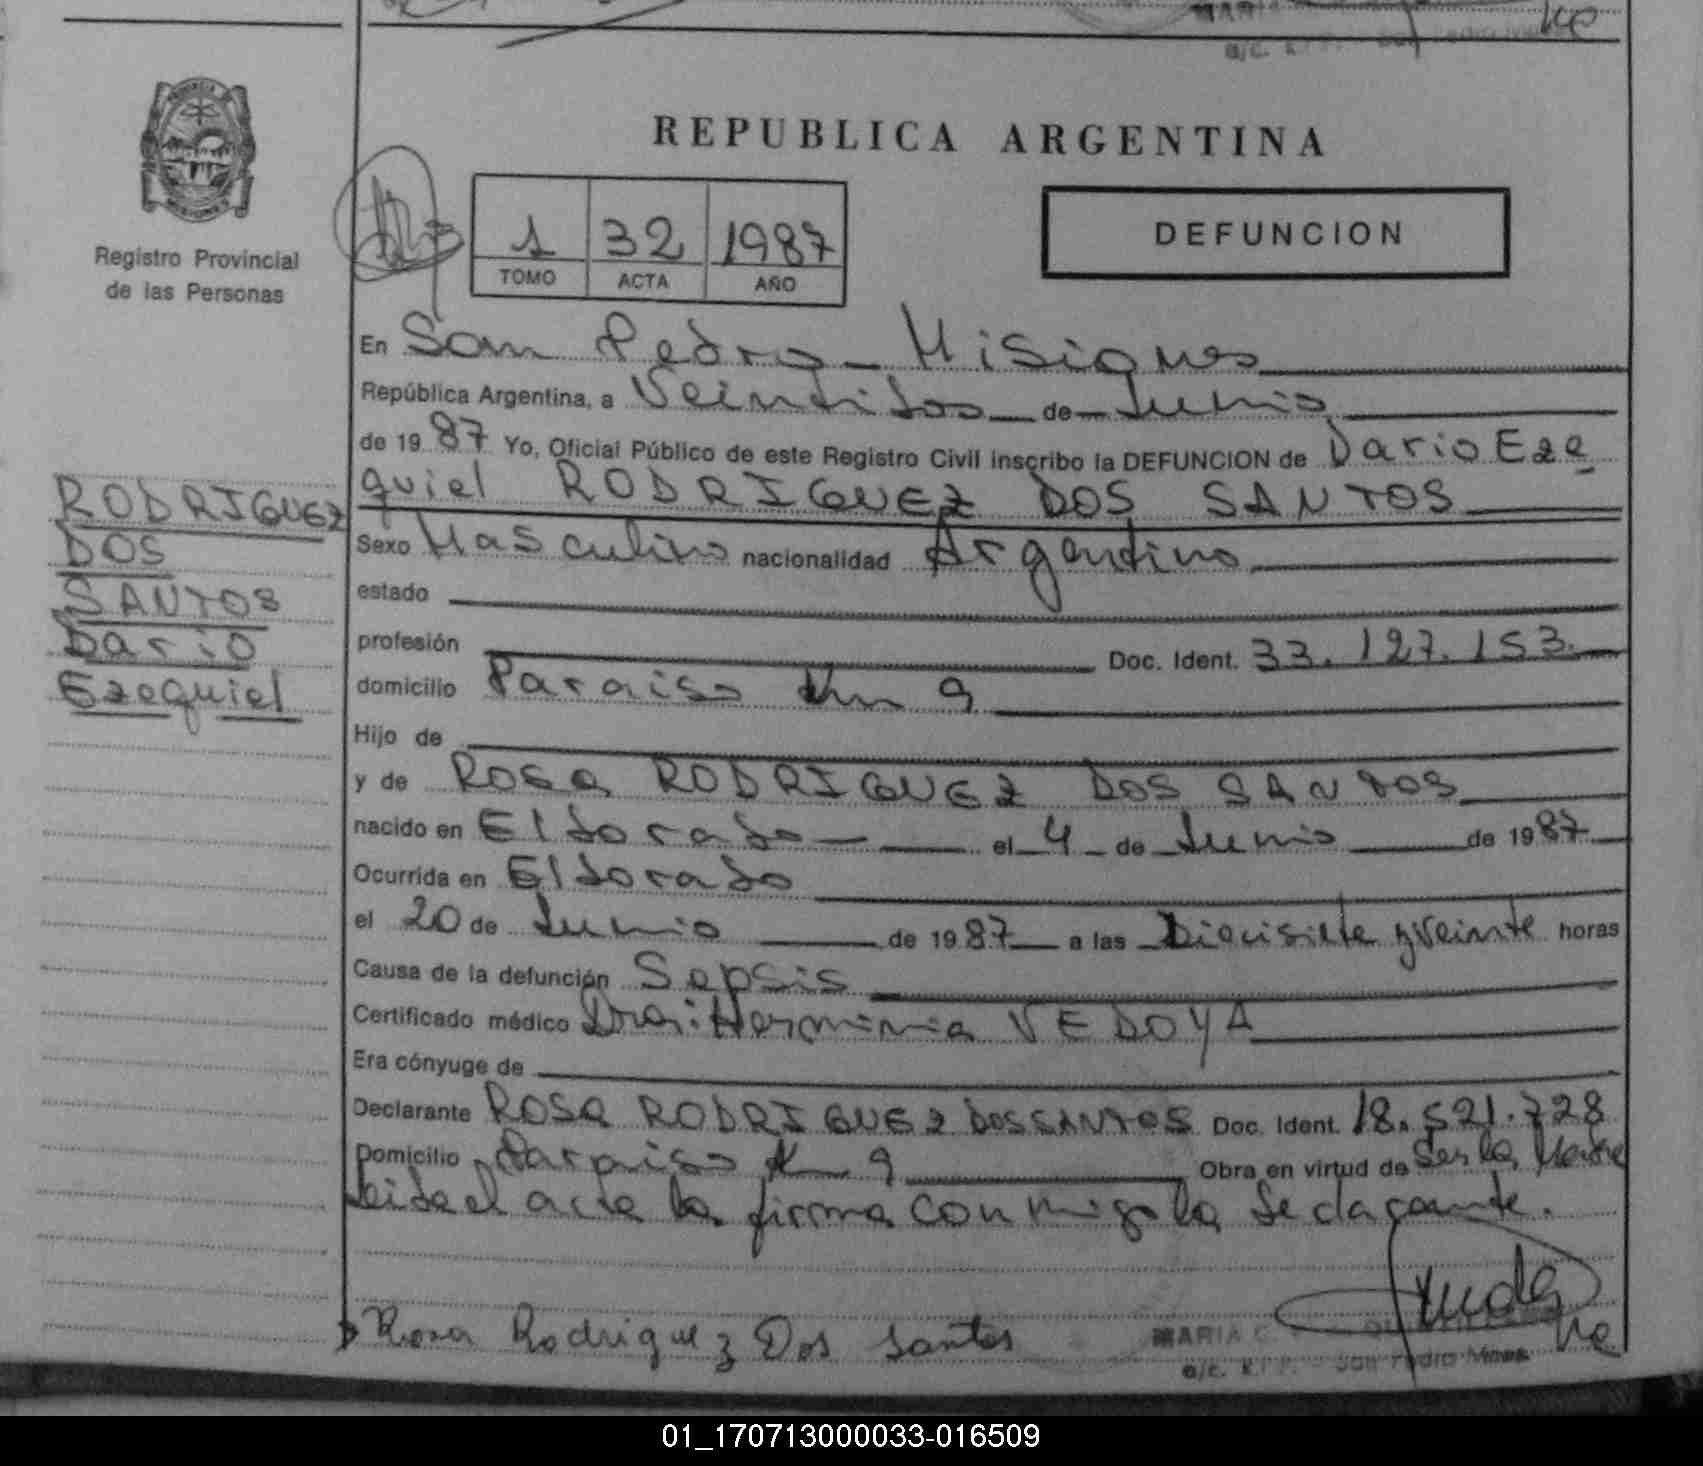 REPUBLICA ARGENTINA
Registro Provincial
de las Personas
1 32 1987
TOMO ACTA AÑO
DEFUNCION
En San Pedro - Misiones
República Argentina, a Veintidos de Junio
de 1987 Yo, Oficial Público de este Registro Civil inscribo la DEFUNCION de Dario Eze
quiel RODRIGUEZ DOS SANTOS
RODRIGUEZ
DOS
SANTOS
Dario
Ezequiel
Sexo Masculino nacionalidad Argentino
estado
profesión Doc. Ident. 33.127.153.
domicilio Paraiso Km 9
Hijo de
y de Rosa RODRIGUEZ DOS SANTOS
nacido en Eldorado el 4 de Junio de 1987
Ocurrida en Eldorado
el 20 de Junio de 1987 a las Diecisiete y veinte horas
Causa de la defunción Sepsis
Certificado médico Dra: Herminia VEDOYA
Era cónyuge de
Declarante ROSA RODRIGUEZ DOS SANTOS Doc. Ident. 18.521.728
Domicilio Paraiso K 9 Obra en virtud de Ser la Madre
Leida el acta la firma conmigo la declarante.
Rosa Rodriguez Dos Santos
MARIA C.
a/c. San Pedro Mnes.
01_170713000033-016509